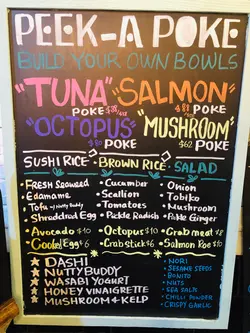 PEEK-A POKE
BUILD YOUR OWN BOWLS
"TUNA" "SALMON"
POKE POKE
"OCTOPUS" "MUSHROOM"
POKE $62 POKE
SUSHI RICE BROWN RICE SALAD
FRESH SEAWEED Cucumber Onion
Edamame Scallion Tobiko
Tofu w/ Nutty Buddy Tomatoes Mushroom
Shredded Egg Pickle Radish Pickle Ginger
Avocado $10 Octopus $10 Crab meat $8
Cooked Egg $6 Crab stick $6 Salmon Roe $10
DASHI NORI
NUTTY BUDDY SESAME SEEDS
WASABI YOGURT BONITO
HONEY VINAIGRETTE NUTS
MUSHROOM & KELP SEA SALT
CHILLI POWDER
CRISPY GARLIC